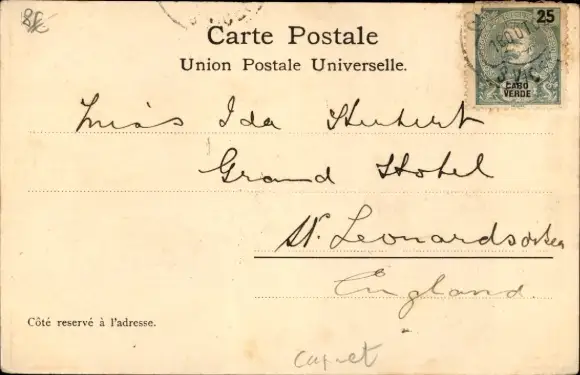 8€
Carte Postale
Union Postale Universelle.
25
CABO
VERDE
Miss Ida
Grand Hotel
St. Leonards
England.
Côté reservé à l'adresse.